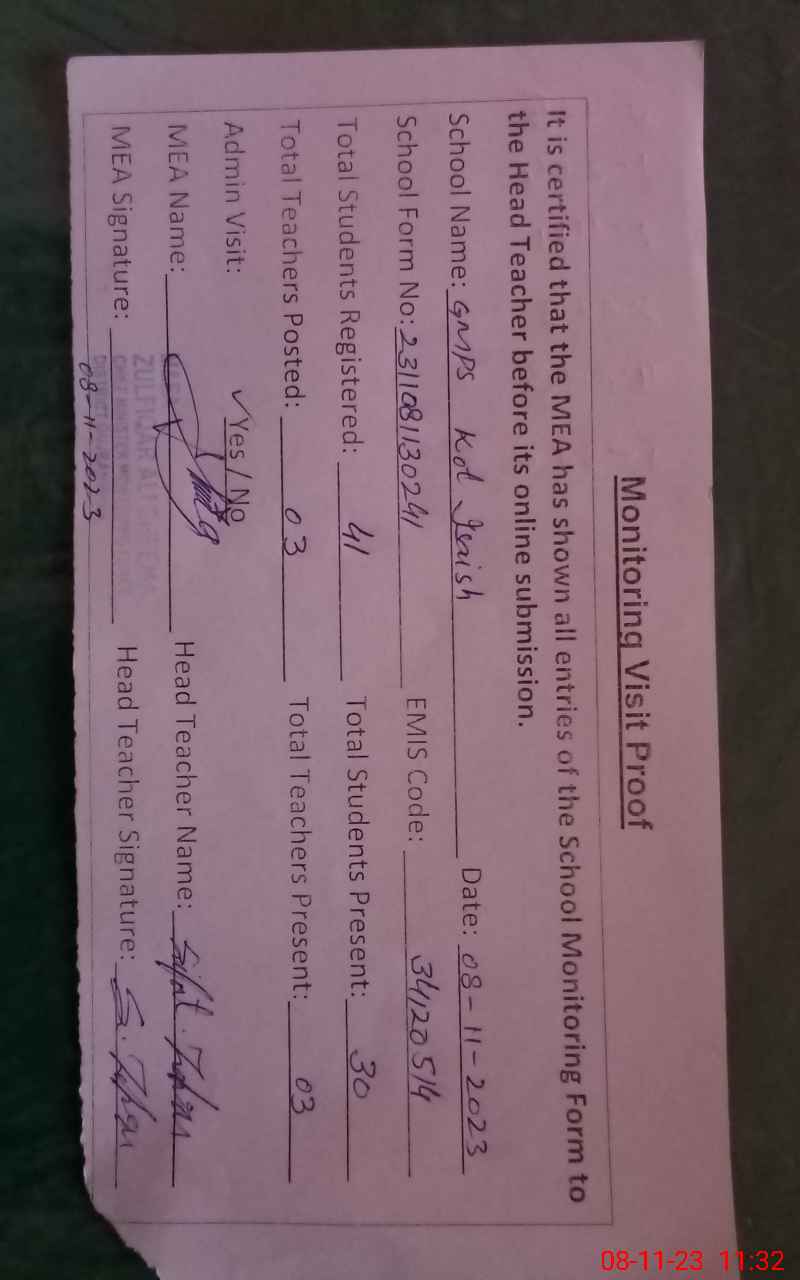 Monitoring Visit Proof
It is certified that the MEA has shown all entries of the School Monitoring Form to
the Head Teacher before its online submission.
School Name: GMPS Kot Date: 08-11-2023
School Form No: 2311081130241 EMIS Code: 34120514
Total Students Registered: 41 Total Students Present: 30
Total Teachers Posted: 03 Total Teachers Present: 03
Admin Visit: ✓Yes / No
MEA Name: Head Teacher Name:
MEA Signature: Head Teacher Signature:
ZULFIQAR
08-11-2023
08-11-23 11:32